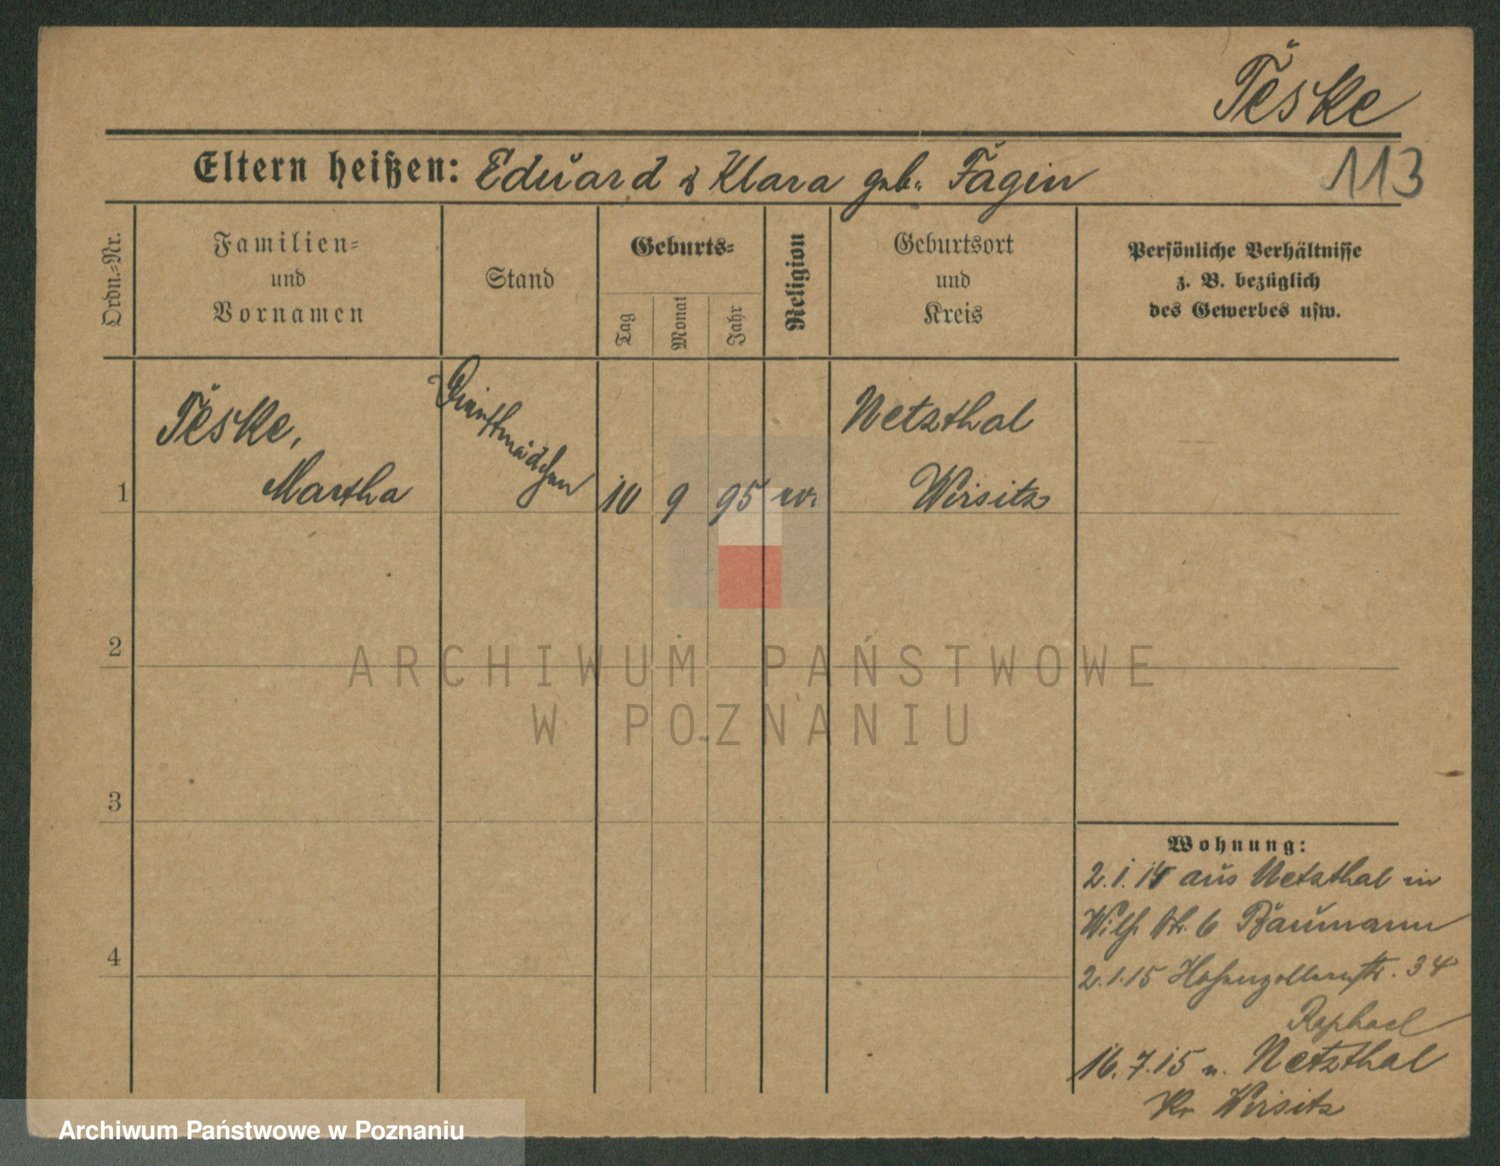 Teske
Eltern heißen: Eduard & Klara geb. Fagin
113
Ordn.-Nr.
Familien-
und
Vornamen
Stand
Geburts-
Tag
Monat
Jahr
Religion
Geburtsort
und
Kreis
Persönliche Verhältnisse
z. B. bezüglich
des Gewerbes usw.
1
Teske,
Martha
Dienstmädchen
10 9 95 ev.
Netzthal
Wirsitz
2
3
4
ARCHIWUM PAŃSTWOWE
W POZNANIU
Wohnung:
2.1.14 aus Netzthal in
Wilh. Str. 6 Baumann
2.1.15 Hohenzollernstr. 34
Raphael
16.7.15 n. Netzthal
Kr Wirsitz
Archiwum Państwowe w Poznaniu